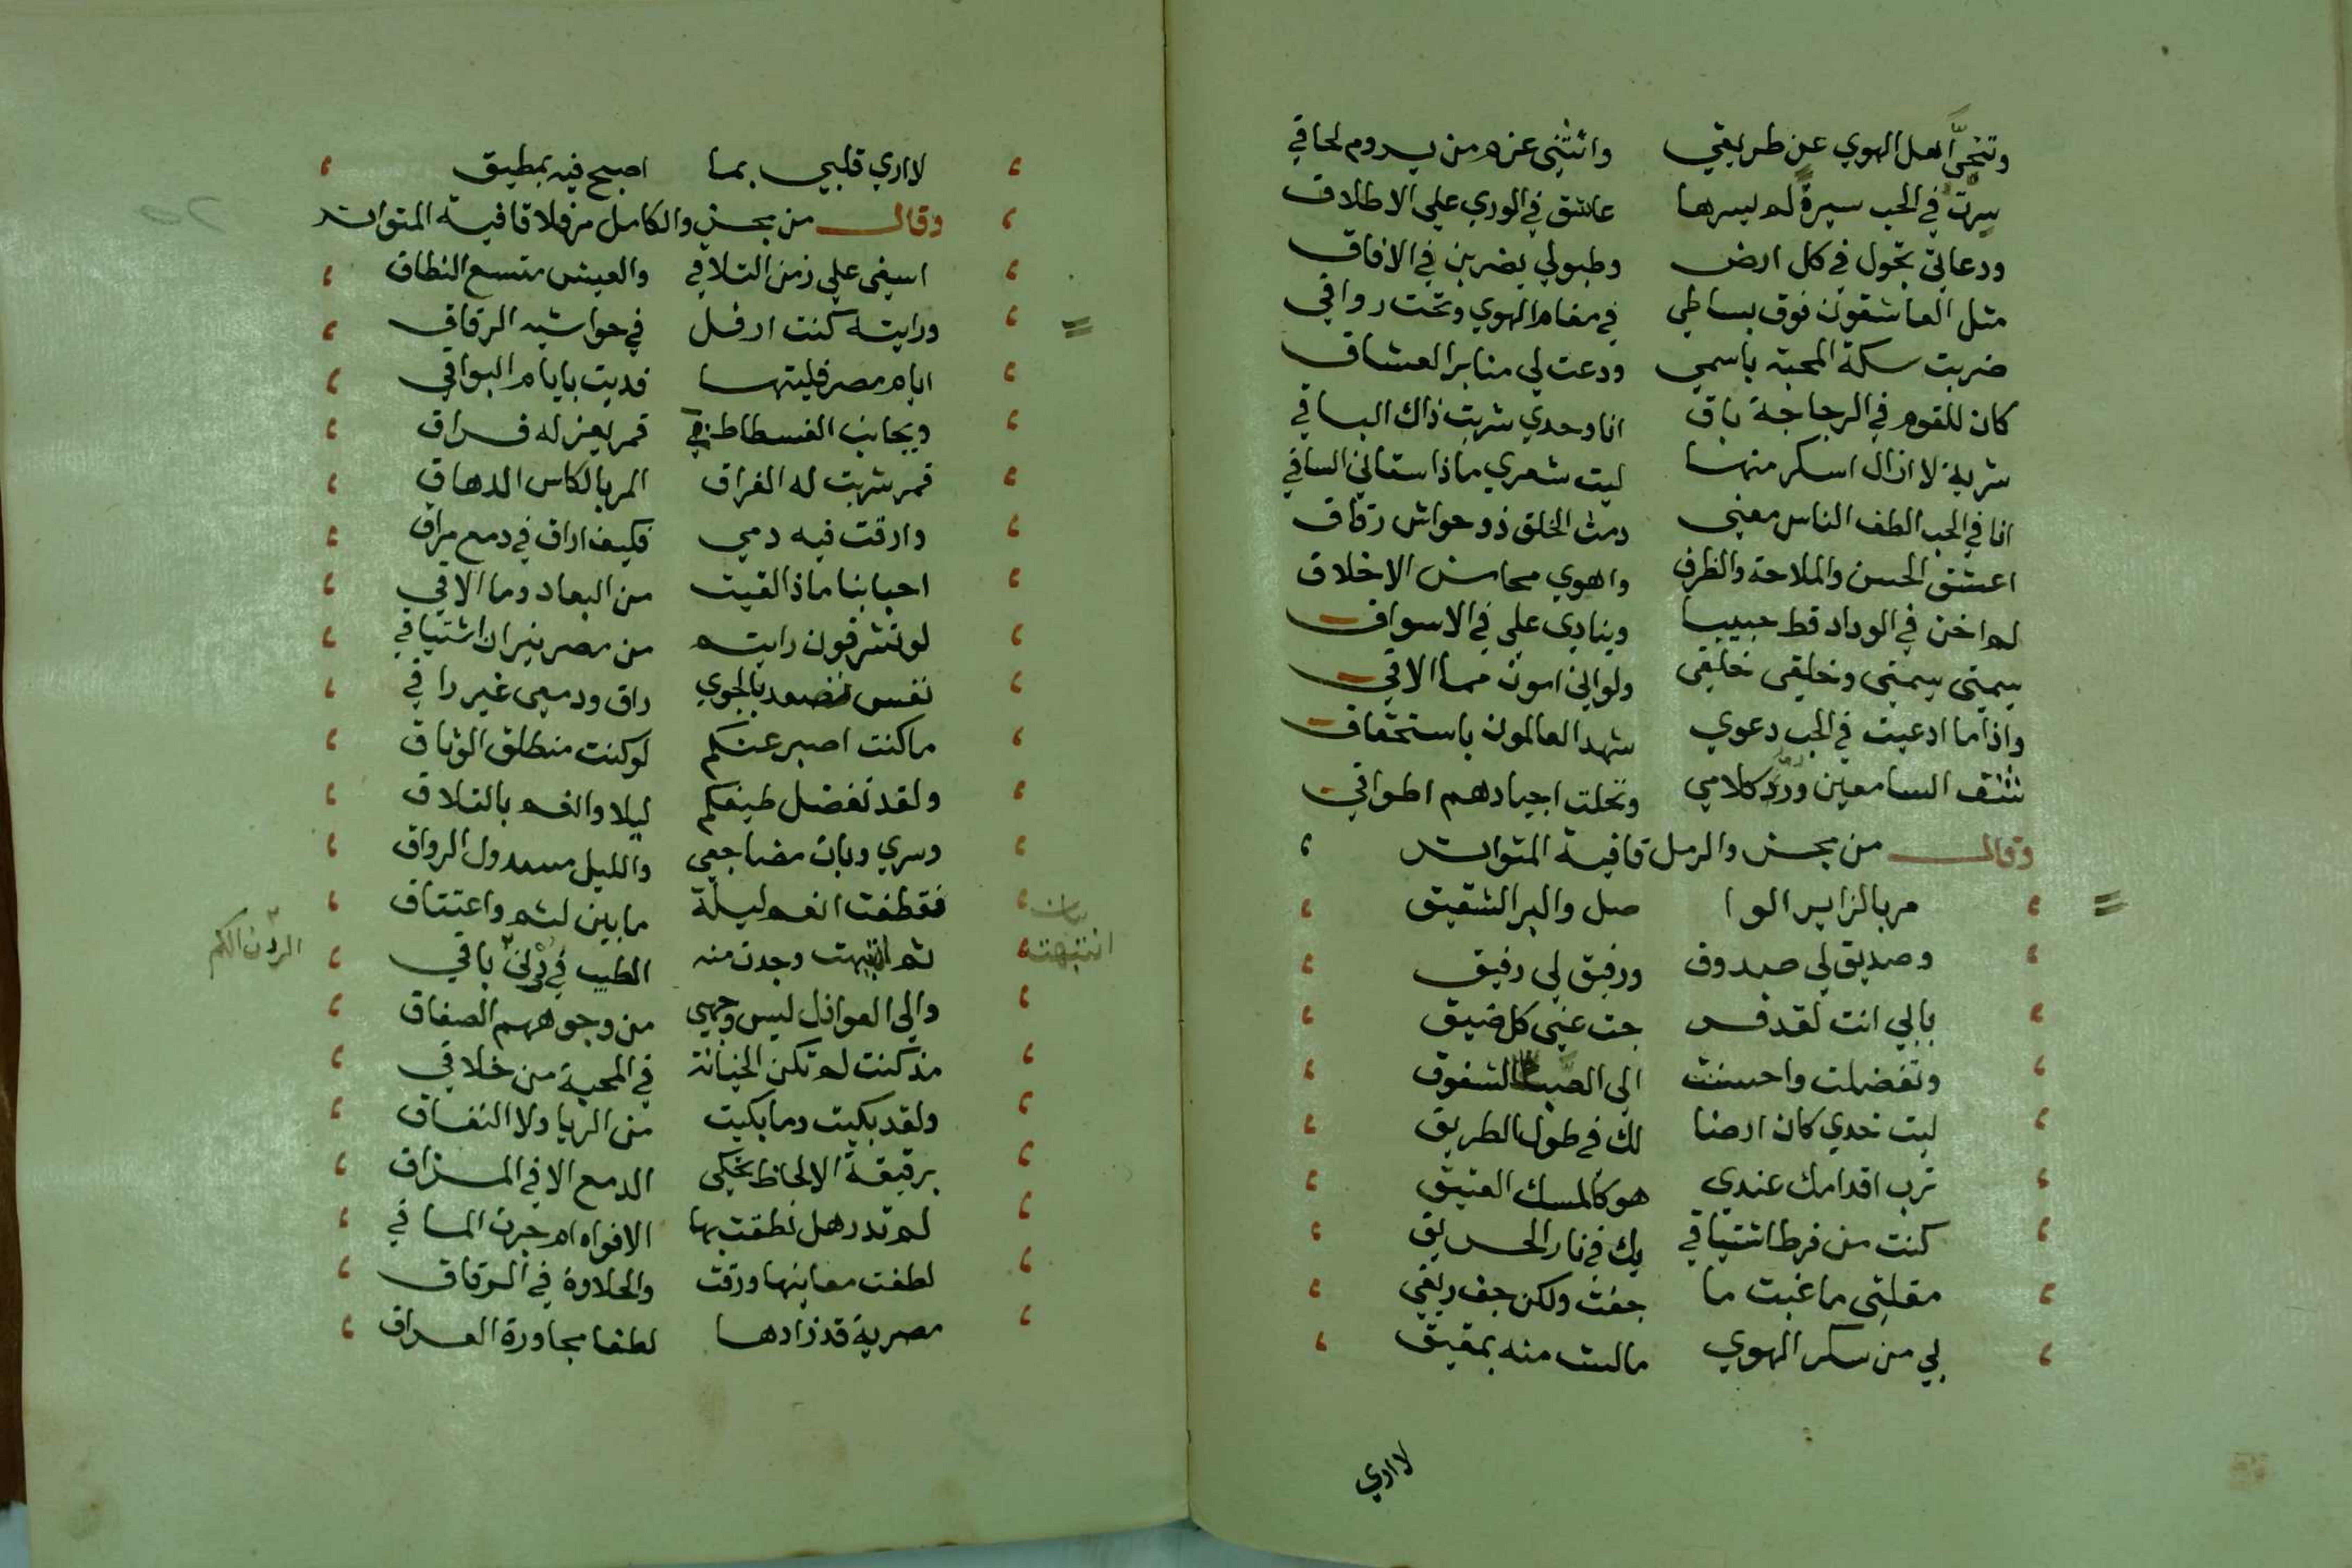 وتنحيَّ اهل الهوي عن طريقي وانثني عزم من يروم لحاقي
سرتُ في الحب سيرةً لم يسرها عاشق في الوري علي الاطلاق
ودعاتي تجول في كل ارض وطبولي يضربن في الافاق
مثل العاشقون فوق بساطي في مقام الهوي وتحت رواقي
ضربت سكة المحبة باسمي ودعت لي منابر العشاق
كان للقوم في الزجاجة باق انا وحدي شربت ذاك الباقي
شربة لا ازال اسكر منها ليت شعري ماذا سقاني الساقي
انا في الحب الطف الناس معني دمث الخلق ذو حواش رقاق
اعشق الحسن والملاحة والظرف واهوي محاسن الاخلاق
لم اخن في الوداد قط حبيبا وينادي علي في الاسواق
شيمتي شيمتي وخلقي خلقي ولو اني اموت مما الاقي
واذا ما ادعيت في الحب دعوي شهد العالمون باستحقاق
شنف السامعين درّ كلامي وتحلت اجيادهم اطواقي
وقال من مجزو الرمل قافية المتواتر
مربا الزاير الوا صل والبر الشقيق
وصديق لي صدوق ورفيق لي رفيق
بابي انت لقد فر جت عني كل ضيق
وتفضلت واحسنت الي الصب الشفوق
ليت خدي كان ارضا لك في طول الطريق
ترب اقدامك عندي هو كالمسك الفتيق
كنت من فرط اشتياقي بك في نار الحريق
مقلتي ما غبت ما جفت ولكن جف ريقي
لي من سكر الهوي مالست منه بمفيق
لا اري
لا اري قلبي بما اصبح فيه بمطيق
وقال من مجزو الكامل مرفلا قافية المتواتر
اسفي علي زمن التلاقي والعيش متسع النطاق
ورايته كنت ارفل في حواشيه الرقاق
ايام مصر فليتها فديت بايام البواقي
وبجانب الفسطاط لي قمر يعز له فراق
قمر شربت له الفراق المر بالكاس الدهاق
وارقت فيه دمي فكيف اراق في دمع مراق
احبابنا ماذا لقيت من البعاد وما الاقي
لو تشرفون رايتم من مصر نيران اشتياقي
نفس تصعد بالجوي راق ودمعي غير راقي
ما كنت اصبر عنكم لو كنت منطلق الوثاق
ولقد تفضل طيفكم ليلا وانعم بالتلاق
وسري وبات مضاجعي والليل مسدول الرواق
فقطعت انعم ليلة ما بين لثم واعتناق
ثم انتبهت وجدت منه الطيب في ردني باقي
بيان
انتبهت
الردن الكم
والي العواذل ليس وجهي من وجوههم الصفاق
مذ كنت لم تكن الخيانة في المحبة من خلاقي
ولقد بكيت وما بكيت من الريا ولا النفاق
برقيقة الالحاظ تحكي الدمع الا في المذاق
لم تدر هل نطقت بها الافواه ام جرت الماقي
لطفت معانيها ورقت والحلاوة في الرقاق
مصرية قد زادها لطفا مجاورة العراق